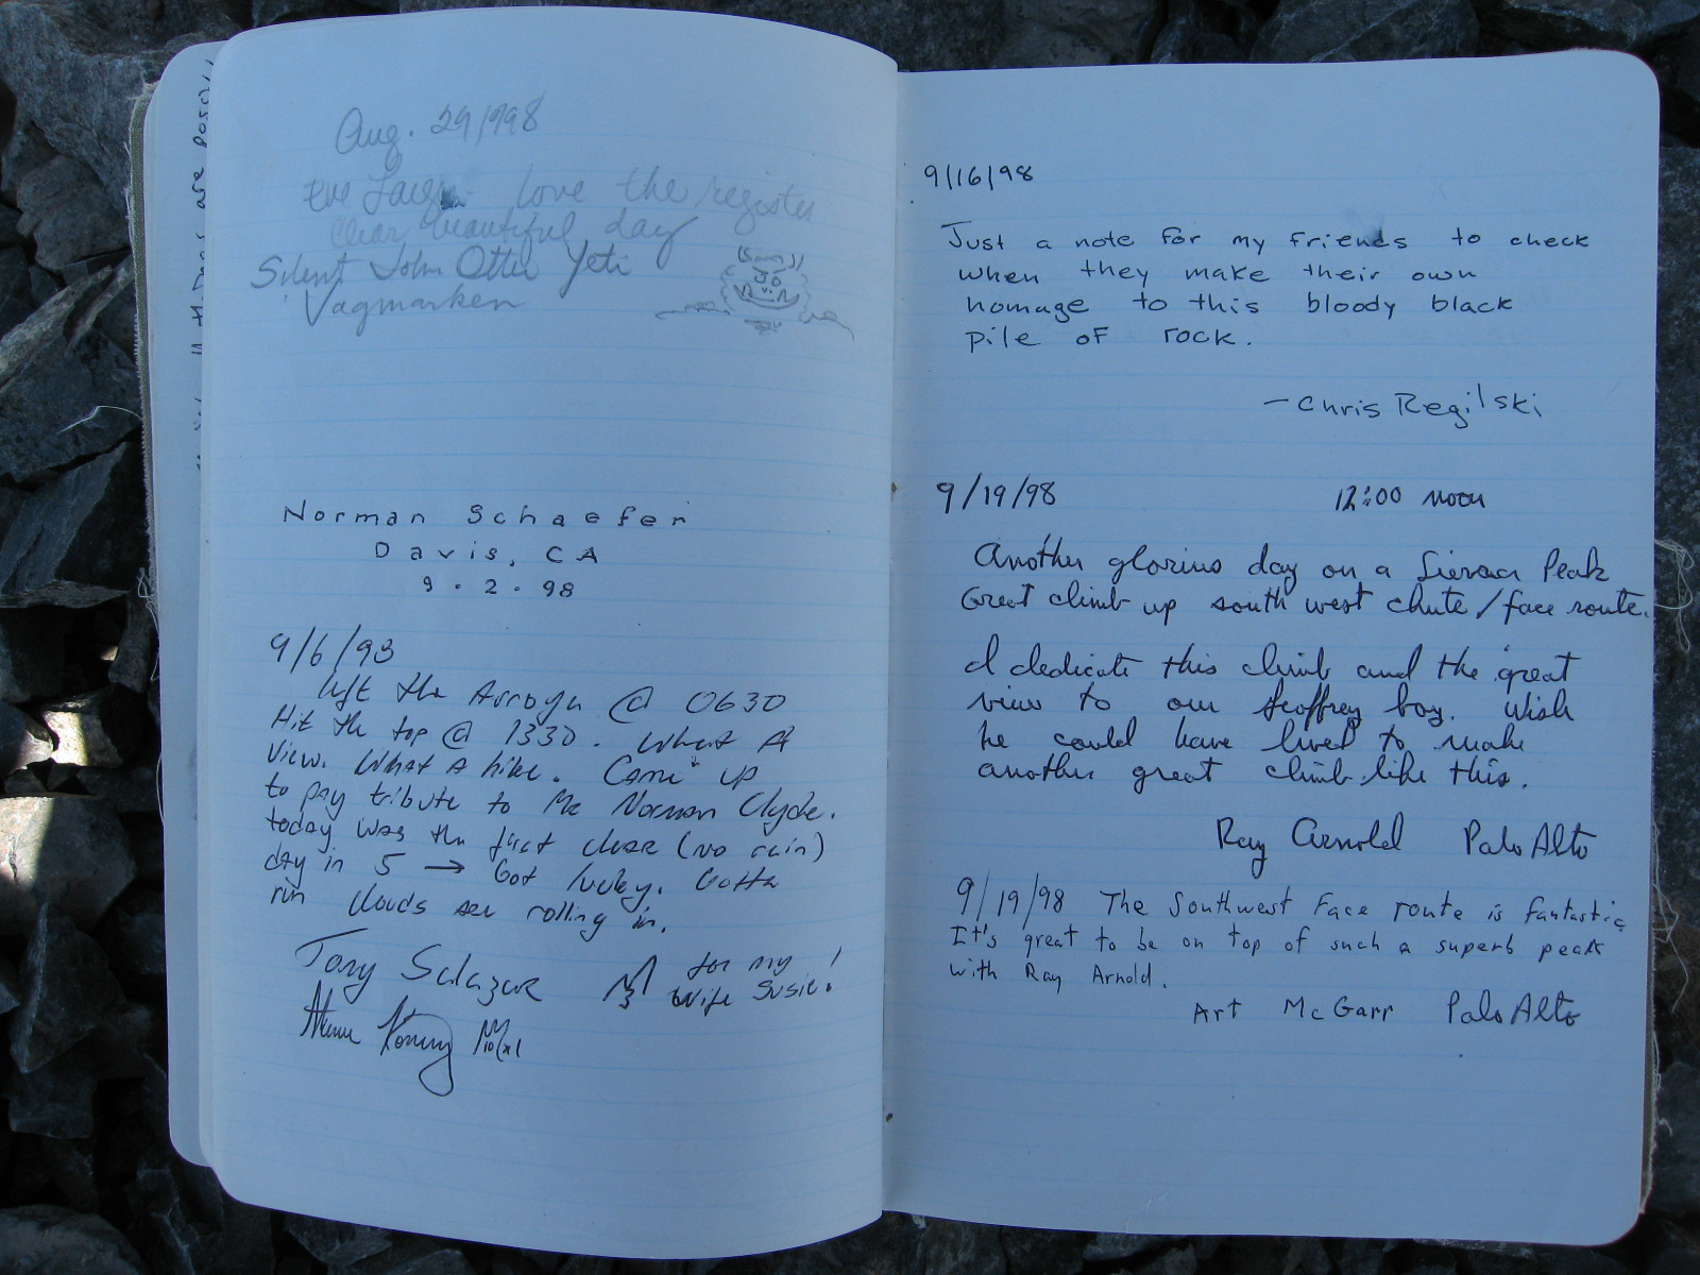 Aug. 29/1998
Eve love the register
clear beautiful day
Silent John Otter Yeti
Vagmarken
Norman Schaefer
Davis, CA
9.2.98
9/6/98
left the Arroyo @ 0630
Hit the top @ 1330. What A
View. What A hike. Came up
to pay tribute to Mr Norman Clyde.
today was the first clear (no rain)
day in 5 → Got lucky. Gotta
run clouds are rolling in.
Tony Salazar for my
wife Susie!
9/16/98
Just a note for my friends to check
when they make their own
homage to this bloody black
pile of rock.
- Chris Regilski
9/19/98 12:00 noon
Another glorius day on a Sierra Peak
Great climb up south west chute/face route.
I dedicate this climb and the great
view to our Geoffrey boy. Wish
he could have lived to make
another great climb like this.
Ray Arnold Palo Alto
9/19/98 The Southwest Face route is fantastic
It's great to be on top of such a superb peak
with Ray Arnold.
Art McGarr Palo Alto
are